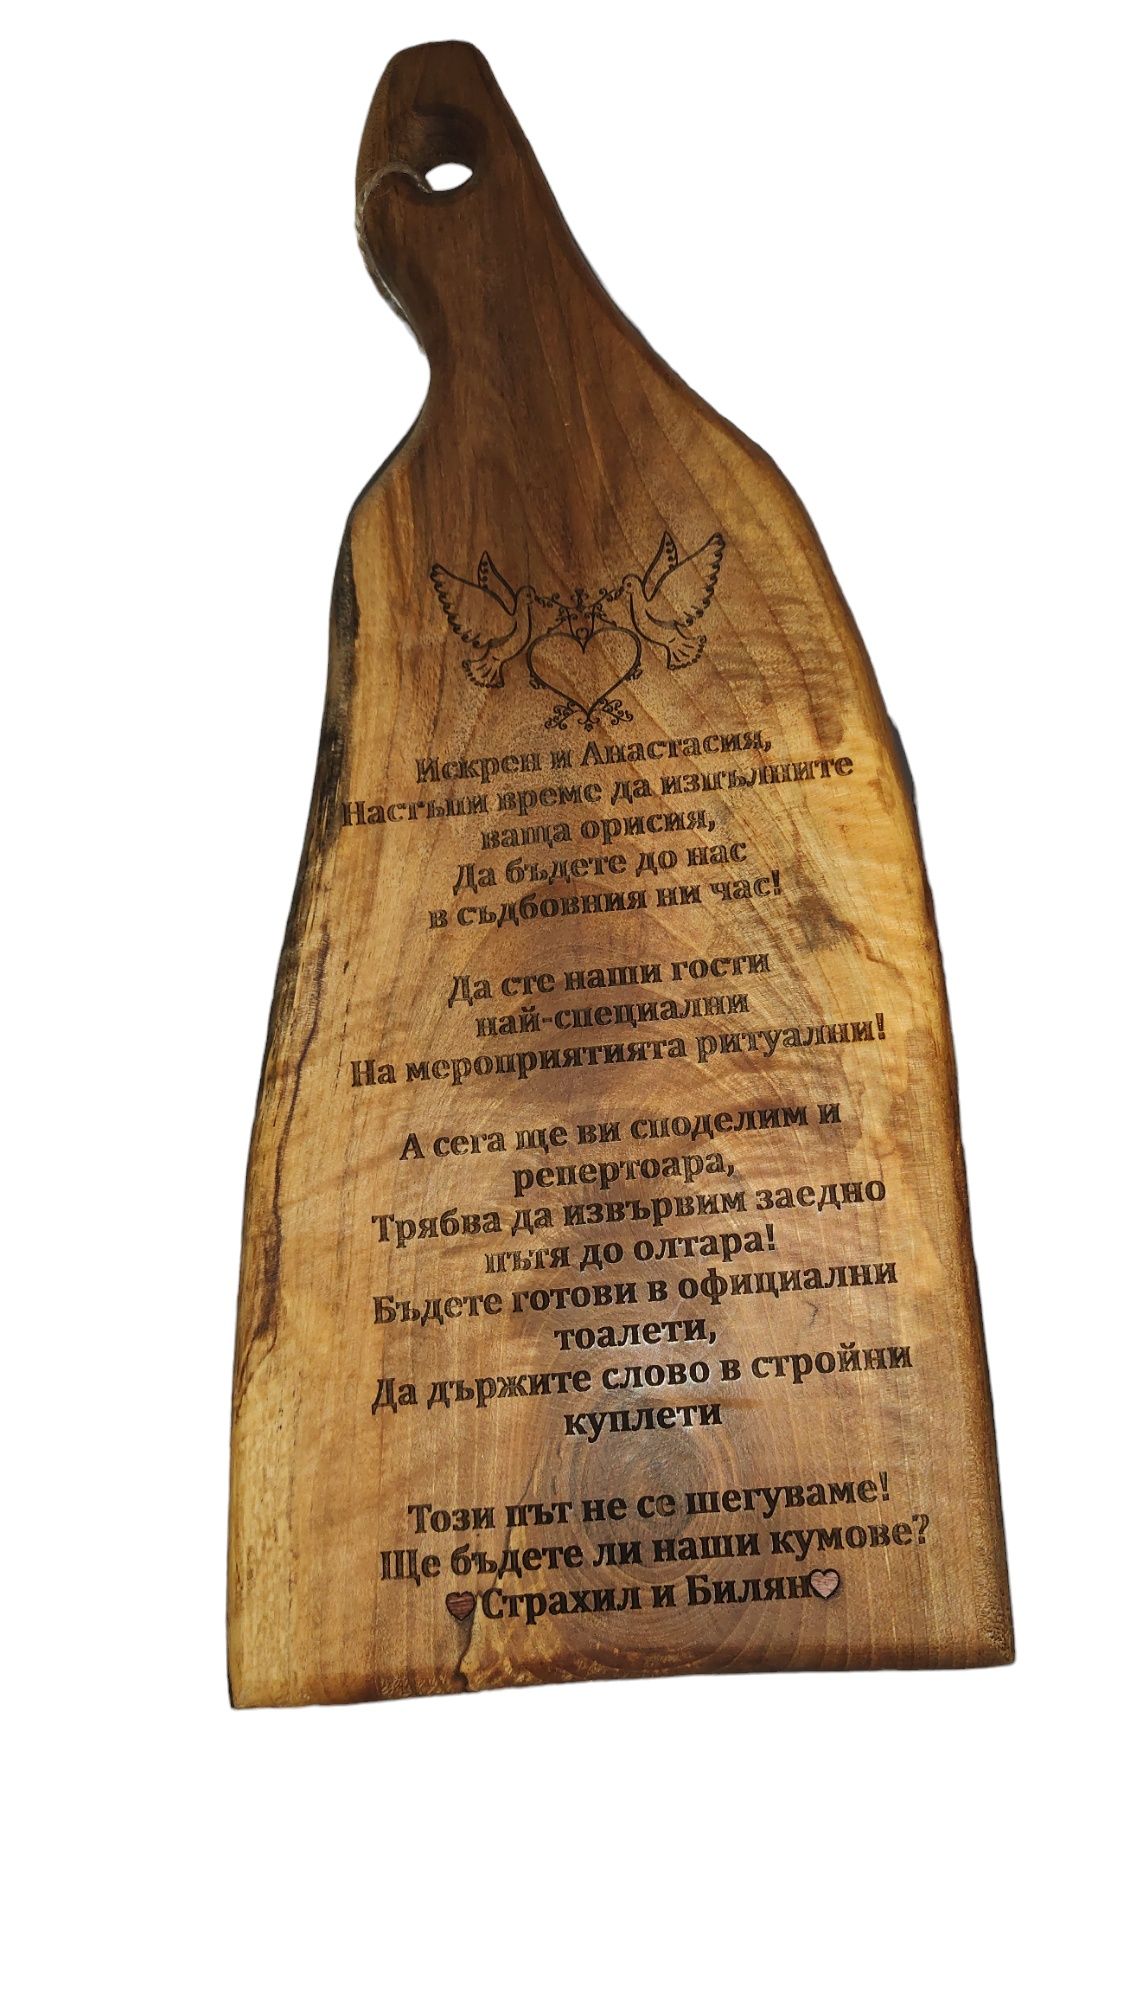 Искрен и Анастасия,
Настъпи време да изпълните
ваща орисия,
Да бъдете до нас
в съдбовния ни час!
Да сте наши гости
най-специални
На мероприятията ритуални!
А сега ще ви споделим и
репертоара,
Трябва да извървим заедно
пътя до олтара!
Бъдете готови в официални
тоалети,
Да държите слово в стройни
куплети
Този път не се шегуваме!
Ще бъдете ли наши кумове?
Страхил и Билян